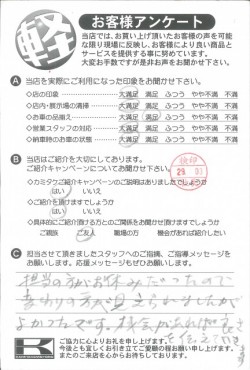 軽
お客様アンケート
当店では、お買い上げ頂いたお客様の声を可能
な限り現場に反映し、お客様により良い商品と
サービスを提供する事に努めています。
大変お手数ですが是非お声をお聞かせ下さい。
A 当店を実際にご利用になった印象をお聞かせ下さい。
◇店の印象 大満足 満足 ふつう やや不満 不満
◇店内・展示場の清掃 大満足 満足 ふつう やや不満 不満
◇お車の品揃え 大満足 満足 ふつう やや不満 不満
◇営業スタッフの対応 大満足 満足 ふつう やや不満 不満
◇納車時のお車の状態 大満足 満足 ふつう やや不満 不満
B 当店はご紹介を大切にしております。
ご紹介キャンペーンについてお聞かせ下さい。
◇カミタウご紹介キャンペーンのご説明はありましたでしょうか
はい いいえ
◇ご紹介を頂けますでしょうか
はい いいえ
◇具体的にご紹介頂ける方とのご関係をお聞かせ頂けますでしょうか
ご親戚 ご友人 職場の方 機会があれば紹介したい
C 担当させて頂きましたスタッフへのご指摘、ご指導メッセージを
お願いします。応援メッセージもぜひお願いします。
担当の方がお休みだったので
よかったです。機会があれば
K
ご協力に心よりお礼を申し上げます。
今後とも宜しくお引き立てご愛顧の程お願い申し上げます。
またのご来店を心からお待ちしております。